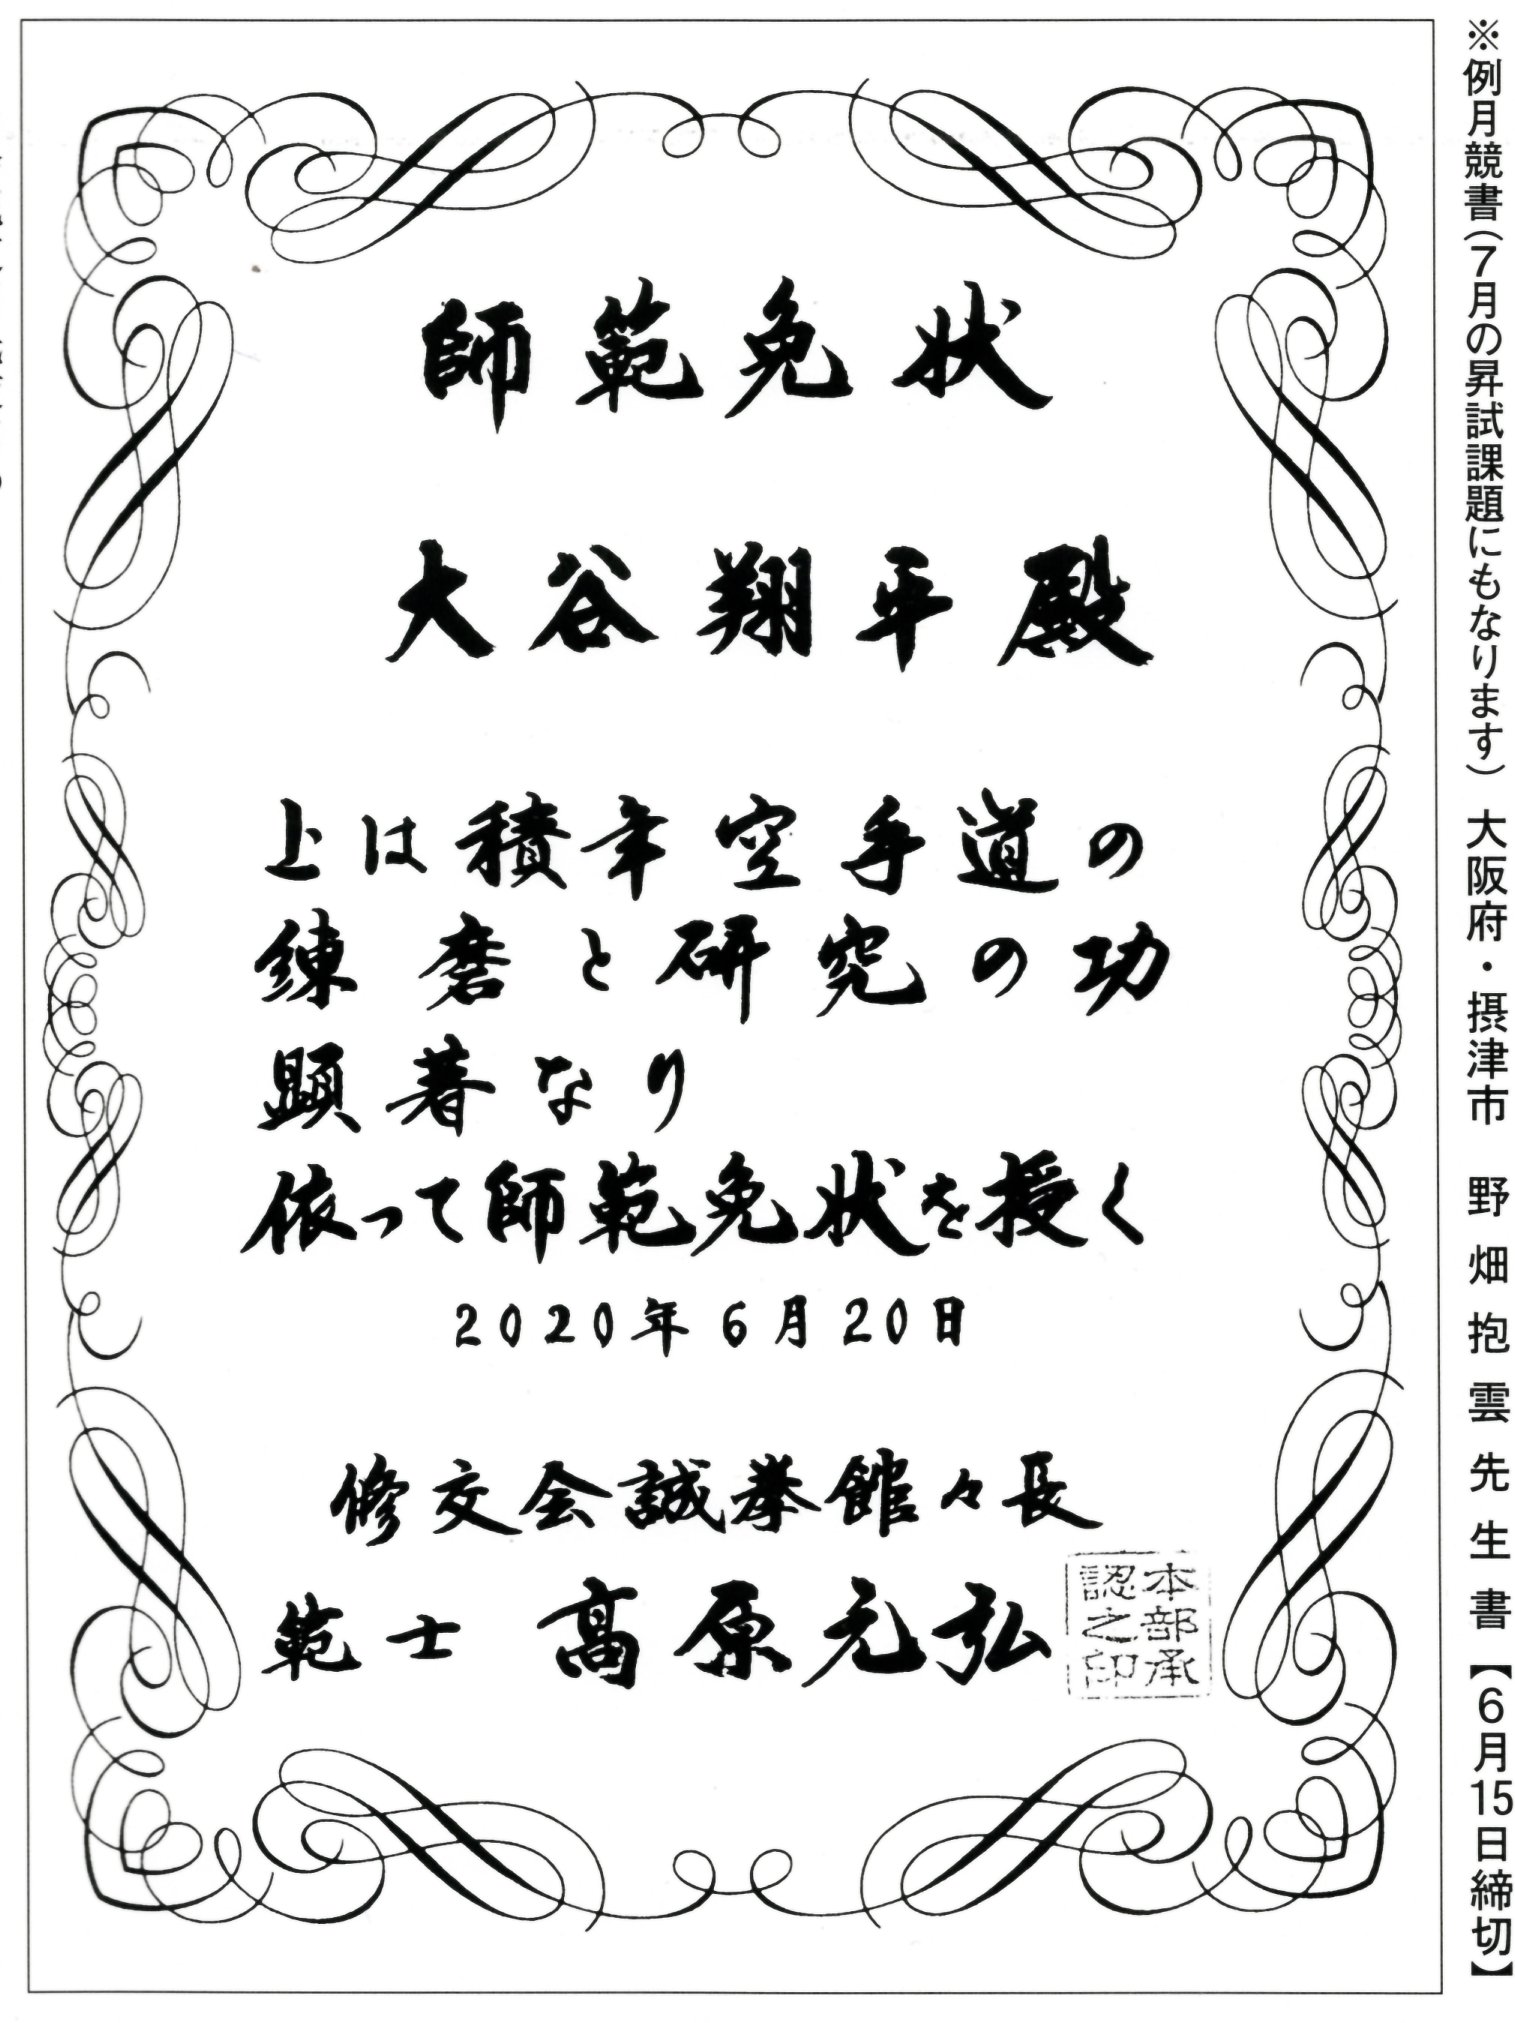 ※例月競書(7月の昇試課題にもなります) 大阪府・摂津市 野畑抱雲先生書【6月15日締切】
師範免状
大谷翔平殿
上は積年空手道の
練磨と研究の功
顕著なり
依って師範免状を授く
2020年6月20日
修交会誠拳館々長
範士 髙原元弘
本部承
認之印